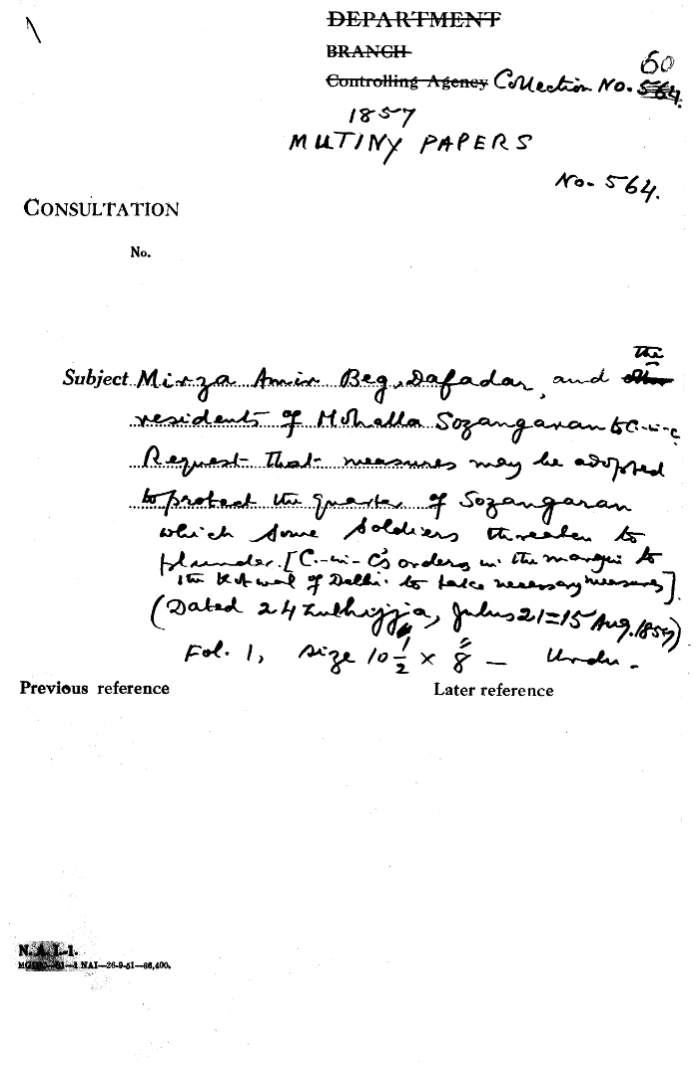 DEPARTMENT
BRANCH
Controlling Agency Collection No. 60
564.
1857
MUTINY PAPERS
No. 564.
CONSULTATION
No.
Subject Mirza Amir Beg, Dafadar, and the
residents of Mohalla Sozangaran to C-in-C
Request that measures may be adopted
to protect the quarter of Sozangaran
which some soldiers threaten to
plunder. [C-in-C's orders in the margin to
the Kotwal of Delhi to take necessary measures].
(Dated 24 Zulhijjia, Julus 21=15 Aug. 1857)
Fol. 1, size 10 1/2" x 8" — Urdu.
Previous reference
Later reference
N. A. I.-1.
NAI—26-9-51—66,400.